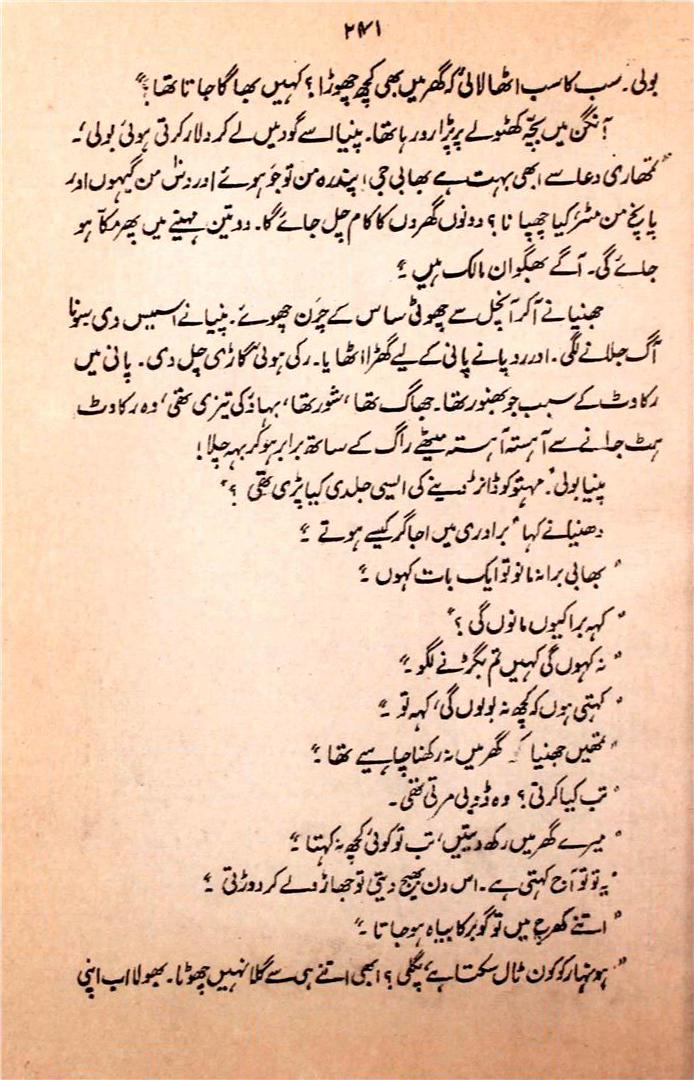 ۲۴۱
بولی۔ سب کا سب اٹھا لائی کہ گھر میں بھی کچھ چھوڑا؟ کہیں بھاگا جاتا تھا؟"
آنگن میں بچہ کھٹولے پر پڑا رو رہا تھا۔ پنیا اسے گود میں لے کر دلار کرتی ہوئی بولی۔
"تمھاری دعا سے ابھی بہت ہے بھابی جی! پندرہ من تو جو ہوئے اور دس من گیہوں اور
پانچ من مٹر، کیا چھپانا؟ دونوں گھروں کا کام چل جائے گا۔ دو تین مہینے میں پھر مکا ہو
جائے گی۔ آگے بھگوان مالک ہیں۔"
جھنیا نے آکر آنچل سے چھوٹی ساس کے چرن چھوئے۔ پنیا نے اسیس دی۔ سونا
آگ جلانے لگی۔ اور روپا نے پانی کے لیے گھڑا اٹھایا۔ رکی ہوئی گاڑی چل دی۔ پانی میں
رکاوٹ کے سبب جو بھنور تھا۔ جھاگ تھا، شور تھا، بہاؤ کی تیزی تھی، وہ رکاوٹ
ہٹ جانے سے آہستہ آہستہ میٹھے راگ کے ساتھ برابر ہو کر بہہ چلا!
پنیا بولی "مہتو کو ڈانڑ دینے کی ایسی جلدی کیا پڑی تھی؟"
دھنیا نے کہا "برادری میں اجاگر کیسے ہوتے۔"
"بھابی برا نہ مانو تو ایک بات کہوں۔"
"کہہ برا کیوں مانوں گی؟"
"نہ کہوں گی کہیں تم بگڑنے لگو۔"
"کہتی ہوں کہ کچھ نہ بولوں گی، کہہ تو۔"
"تمھیں جھنیا کو گھر میں نہ رکھنا چاہیے تھا۔"
"تب کیا کرتی؟ وہ ڈوبی مرتی تھی۔
"میرے گھر میں رکھ دیتیں، تب تو کوئی کچھ نہ کہتا۔"
"یہ تو تو آج کہتی ہے۔ اس دن بھیج دیتی تو جھاڑو لے کر دوڑتی۔"
"اتنے کھرچ میں تو گوبر کا بیاہ ہو جاتا۔"
"ہونہار کو کون ٹال سکتا ہے، پگلی؟ ابھی اتنے ہی سے گلا نہیں چھوٹا۔ بھولا اب اپنی